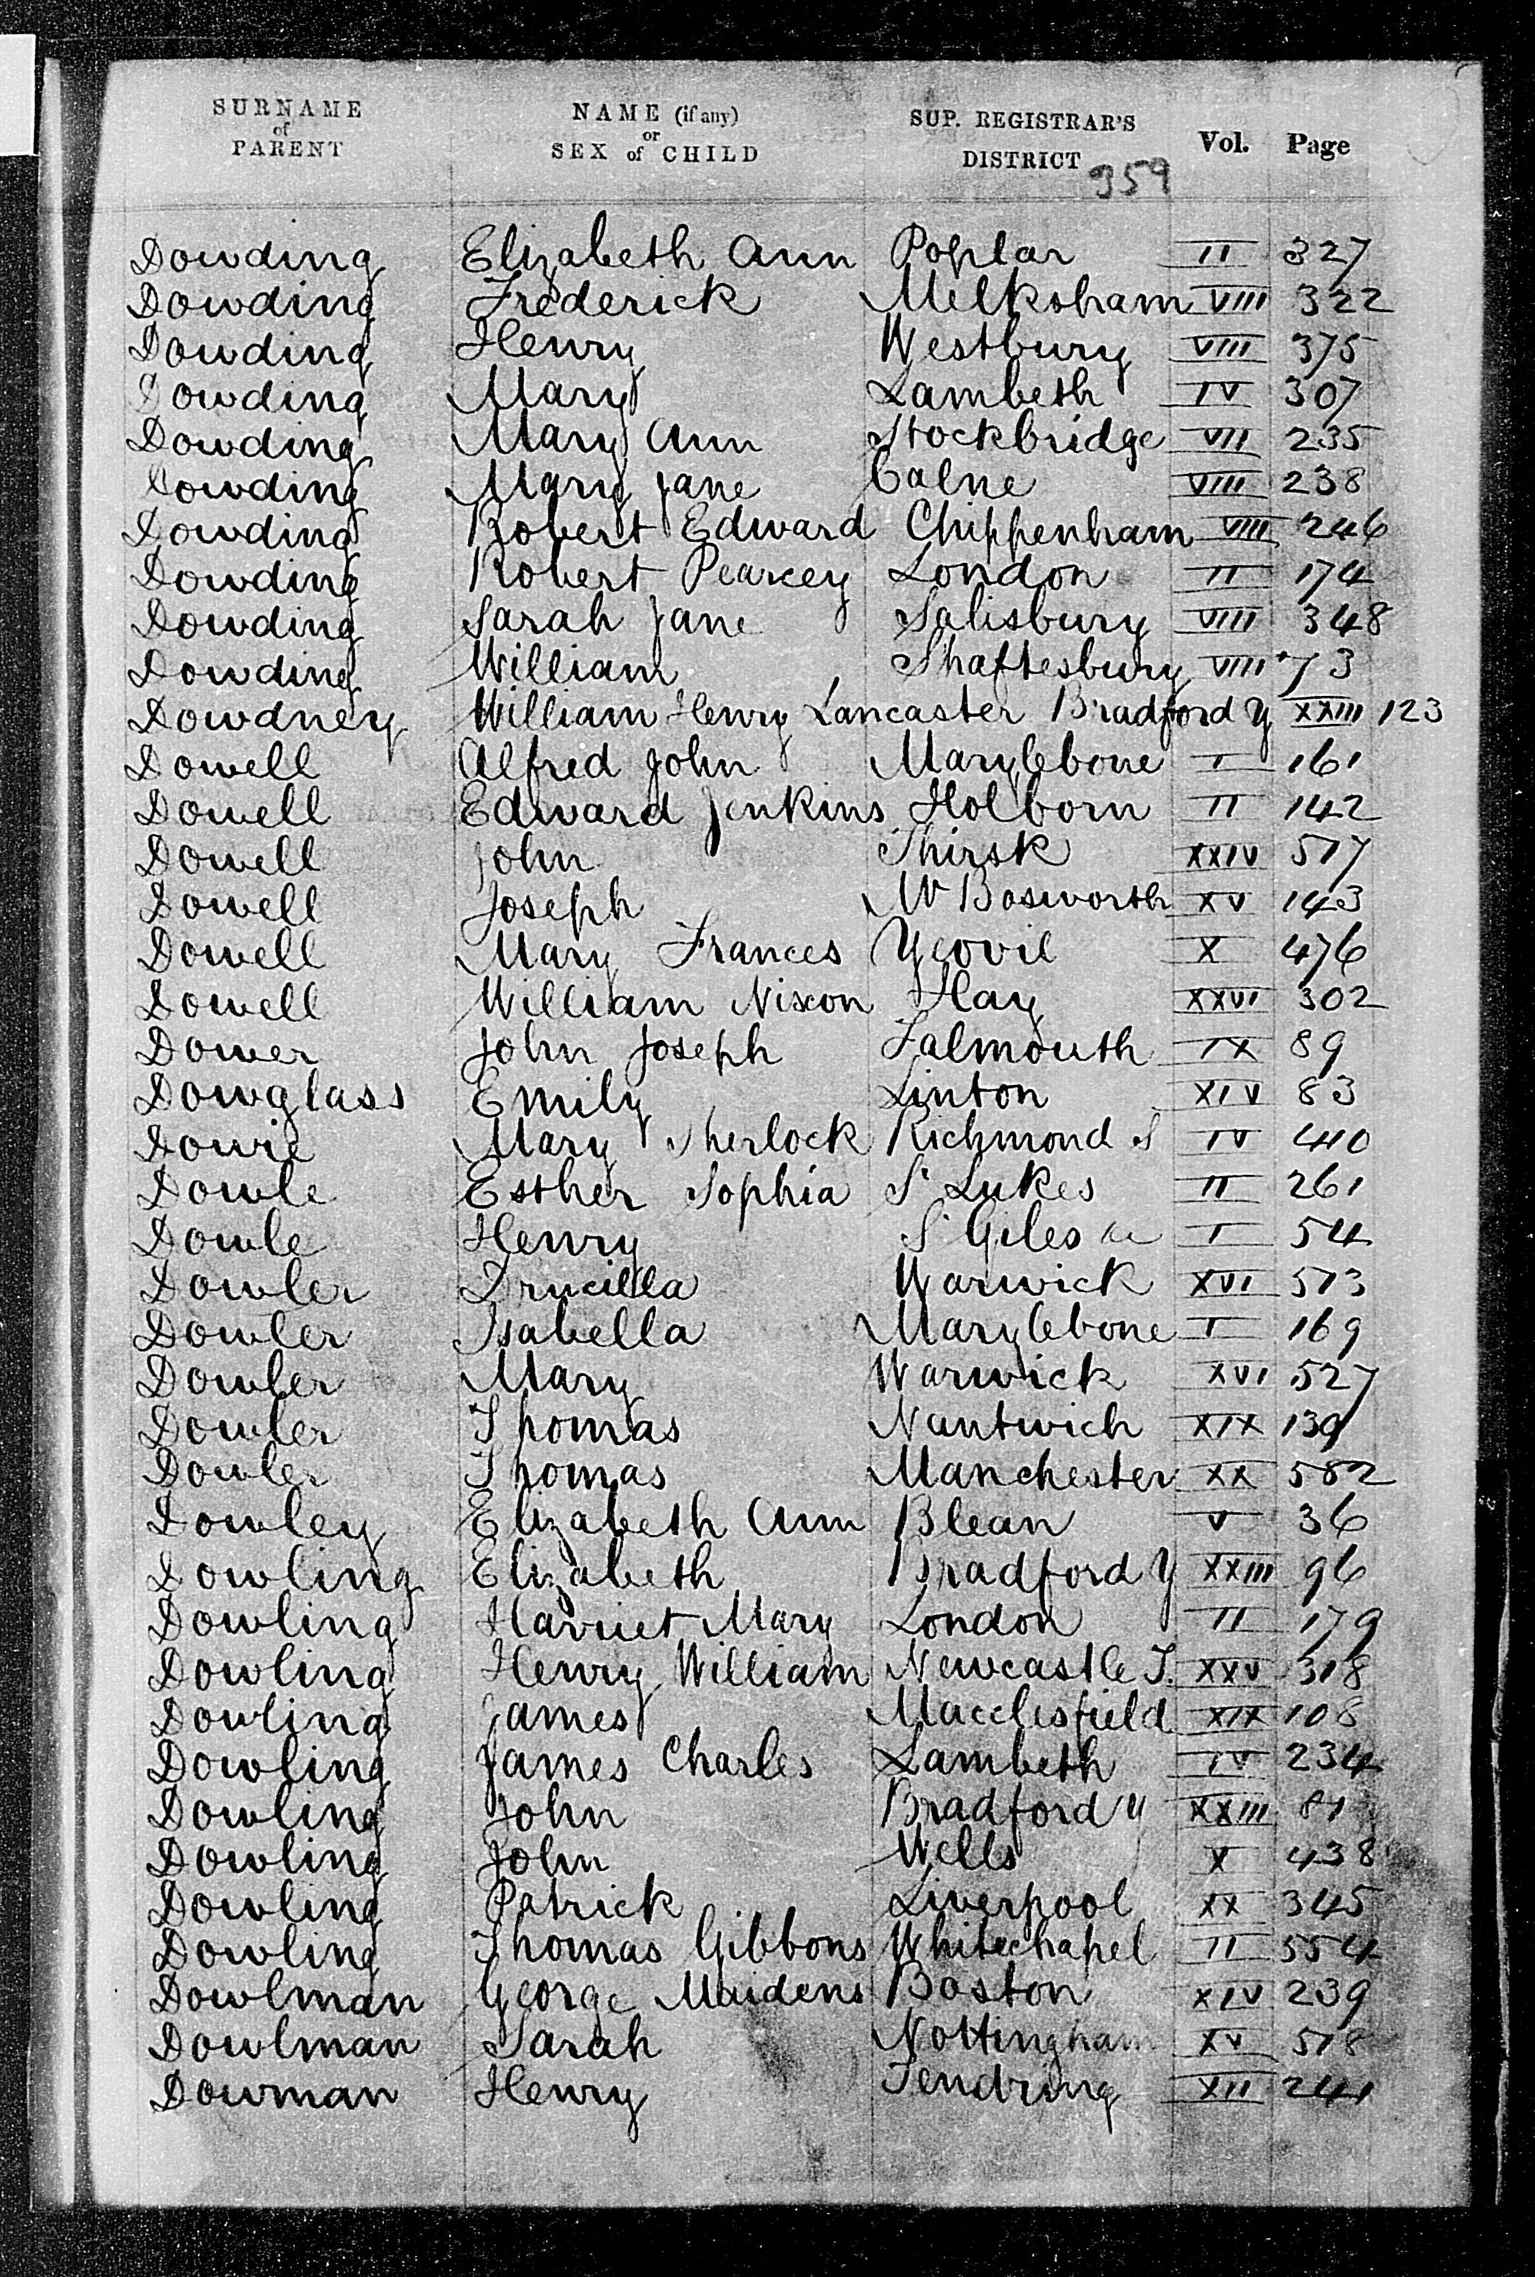 SURNAME of PARENT NAME (if any) or SEX of CHILD SUP. REGISTRAR'S DISTRICT Vol. Page
359
Dowding Elizabeth Ann Poplar II 327
Dowding Frederick Melksham VIII 322
Dowding Henry Westbury VIII 375
Dowding Mary Lambeth IV 307
Dowding Mary Ann Stockbridge VII 235
Dowding Mary Jane Calne VIII 238
Dowding Robert Edward Chippenham VIII 246
Dowding Robert Pearcey London II 174
Dowding Sarah Jane Salisbury VIII 348
Dowding William Shaftesbury VIII 73
Dowdney William Henry Lancaster Bradford Y XXIII 123
Dowell Alfred John Marylebone I 161
Dowell Edward Jenkins Holborn II 142
Dowell John Thirsk XXIV 517
Dowell Joseph M Bosworth XV 143
Dowell Mary Frances Yeovil X 476
Dowell William Nixon Hay XXVI 302
Dower John Joseph Falmouth IX 89
Dowglass Emily Linton XIV 83
Dowie Mary Sherlock Richmond S IV 410
Dowle Esther Sophia St Lukes II 261
Dowle Henry St Giles &c I 54
Dowler Drucilla Warwick XVI 513
Dowler Isabella Marylebone I 169
Dowler Mary Warwick XVI 527
Dowler Thomas Nantwich XIX 139
Dowler Thomas Manchester XX 582
Dowley Elizabeth Ann Blean V 36
Dowling Elizabeth Bradford Y XXIII 96
Dowling Harriet Mary London II 179
Dowling Henry William Newcastle T. XXV 318
Dowling James Macclesfield XIX 108
Dowling James Charles Lambeth IV 234
Dowling John Bradford Y XXIII 81
Dowling John Wells X 438
Dowling Patrick Liverpool XX 345
Dowling Thomas Gibbons Whitechapel II 554
Dowlman George Maidens Boston XIV 239
Dowlman Sarah Nottingham XV 518
Dowman Henry Tendring XII 241